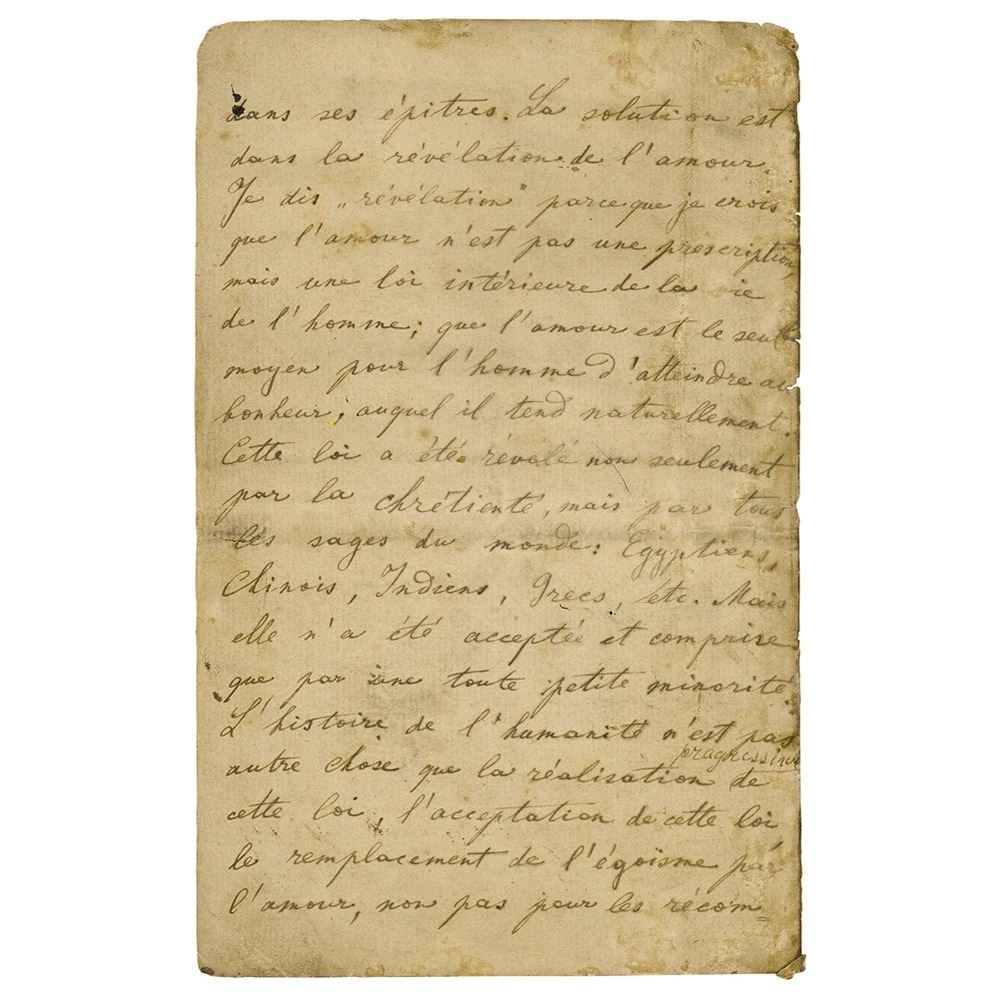 dans ses épitres. La solution est
dans la révélation de l'amour.
Je dis „révélation" parceque je crois
que l'amour n'est pas une prescription,
mais une loi intérieure de la vie
de l'homme; que l'amour est le seul
moyen pour l'homme d'atteindre au
bonheur, auquel il tend naturellement.
Cette loi a été révélé non seulement
par la chrétienté, mais par tous
les sages du monde: Egyptiens,
Chinois, Indiens, Grecs, etc. Mais
elle n'a été acceptée et comprise
que par une toute petite minorité.
L'histoire de l'humanité n'est pas
progressive
autre chose que la réalisation de
cette loi, l'acceptation de cette loi
le remplacement de l'égoïsme par
l'amour, non pas pour les récom=